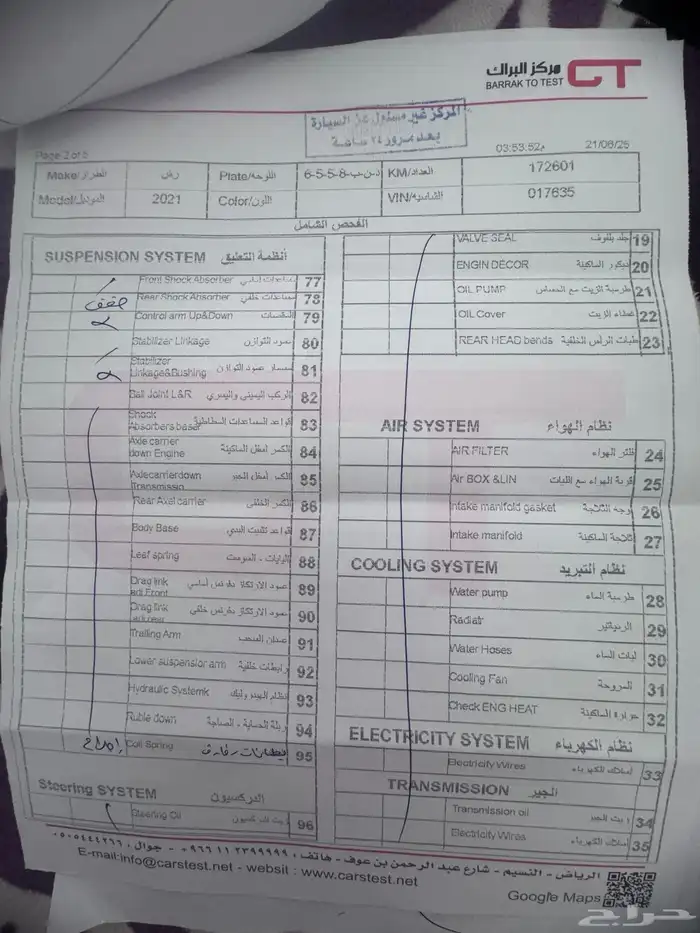 مركز البراك
BARRAK TO TEST
CT
المركز غير مسئول عن السيارة
بعد مرور ٢٤ ساعة
Page 2 of 5
03:53:52م
21/06/25
Make/الطراز
Plate/اللوحة
د-ن-ب-8-5-5-6
KM/العداد
172601
Model/الموديل
2021
Color/اللون
VIN/الشاسيه
017635
الفحص الشامل
SUSPENSION SYSTEM أنظمة التعليق
Front Shock Absorber 77
Rear Shock Absorber مساعدات خلفي 78
Control arm Up&Down المقصات 79
Stabilizer Linkage عمود التوازن 80
Stabilizer Linkage&Bushing مسمار عمود التوازن 81
Ball Joint L&R الركب اليمنى واليسرى 82
Shock Absorbers baser قواعد المساعدات المطاطية 83
Axle carrier down Engine الكسر أسفل الماكينة 84
Axlecarrierdown Transmissio الكسر أسفل الجير 85
Rear Axel carrier الكسر الخلفي 86
Body Base قواعد تثبيت البدي 87
Leaf spring اليايات - السوست 88
Drag link adj.Front 89
Drag link 90
Trailing Arm 91
Lower suspensior arm رابطات خلفية 92
Hydraulic Systemk نظام الهيدروليك 93
Ruble down 94
Coil Spring 95
Steering SYSTEM الدركسيون
Steering Oil زيت الدركسيون 96
VALVE SEAL جلد بلوف 19
ENGIN DECOR ديكور الماكينة 20
OIL PUMP طرمبة الزيت مع الحساس 21
OIL Cover غطاء الزيت 22
REAR HEAD bends طبات الرأس الخلفية 23
AIR SYSTEM نظام الهواء
AIR FILTER فلتر الهواء 24
Air BOX &LIN قربة الهواء مع الليات 25
Intake manifold gasket وجه الثلاجة 26
Intake manifold ثلاجة الماكينة 27
COOLING SYSTEM نظام التبريد
Water pump طرمبة الماء 28
Radiatr الرديتير 29
Water Hoses ليات الماء 30
Cooling Fan المروحة 31
Check ENG HEAT حرارة الماكينة 32
ELECTRICITY SYSTEM نظام الكهرباء
Electricity Wires أسلاك الكهرباء 33
TRANSMISSION الجير
Transmission oil زيت الجير 34
Electricity Wires أسلاك الكهرباء 35
الرياض - النسيم - شارع عبد الرحمن بن عوف - هاتف: ٠٩٦٦١١٢٣٩٩٩٩٩ - جوال: ٠٥٠٥٤٤٤٢٦٦
E-mail:info@carstest.net - websit : www.carstest.net
Google Maps
حراج